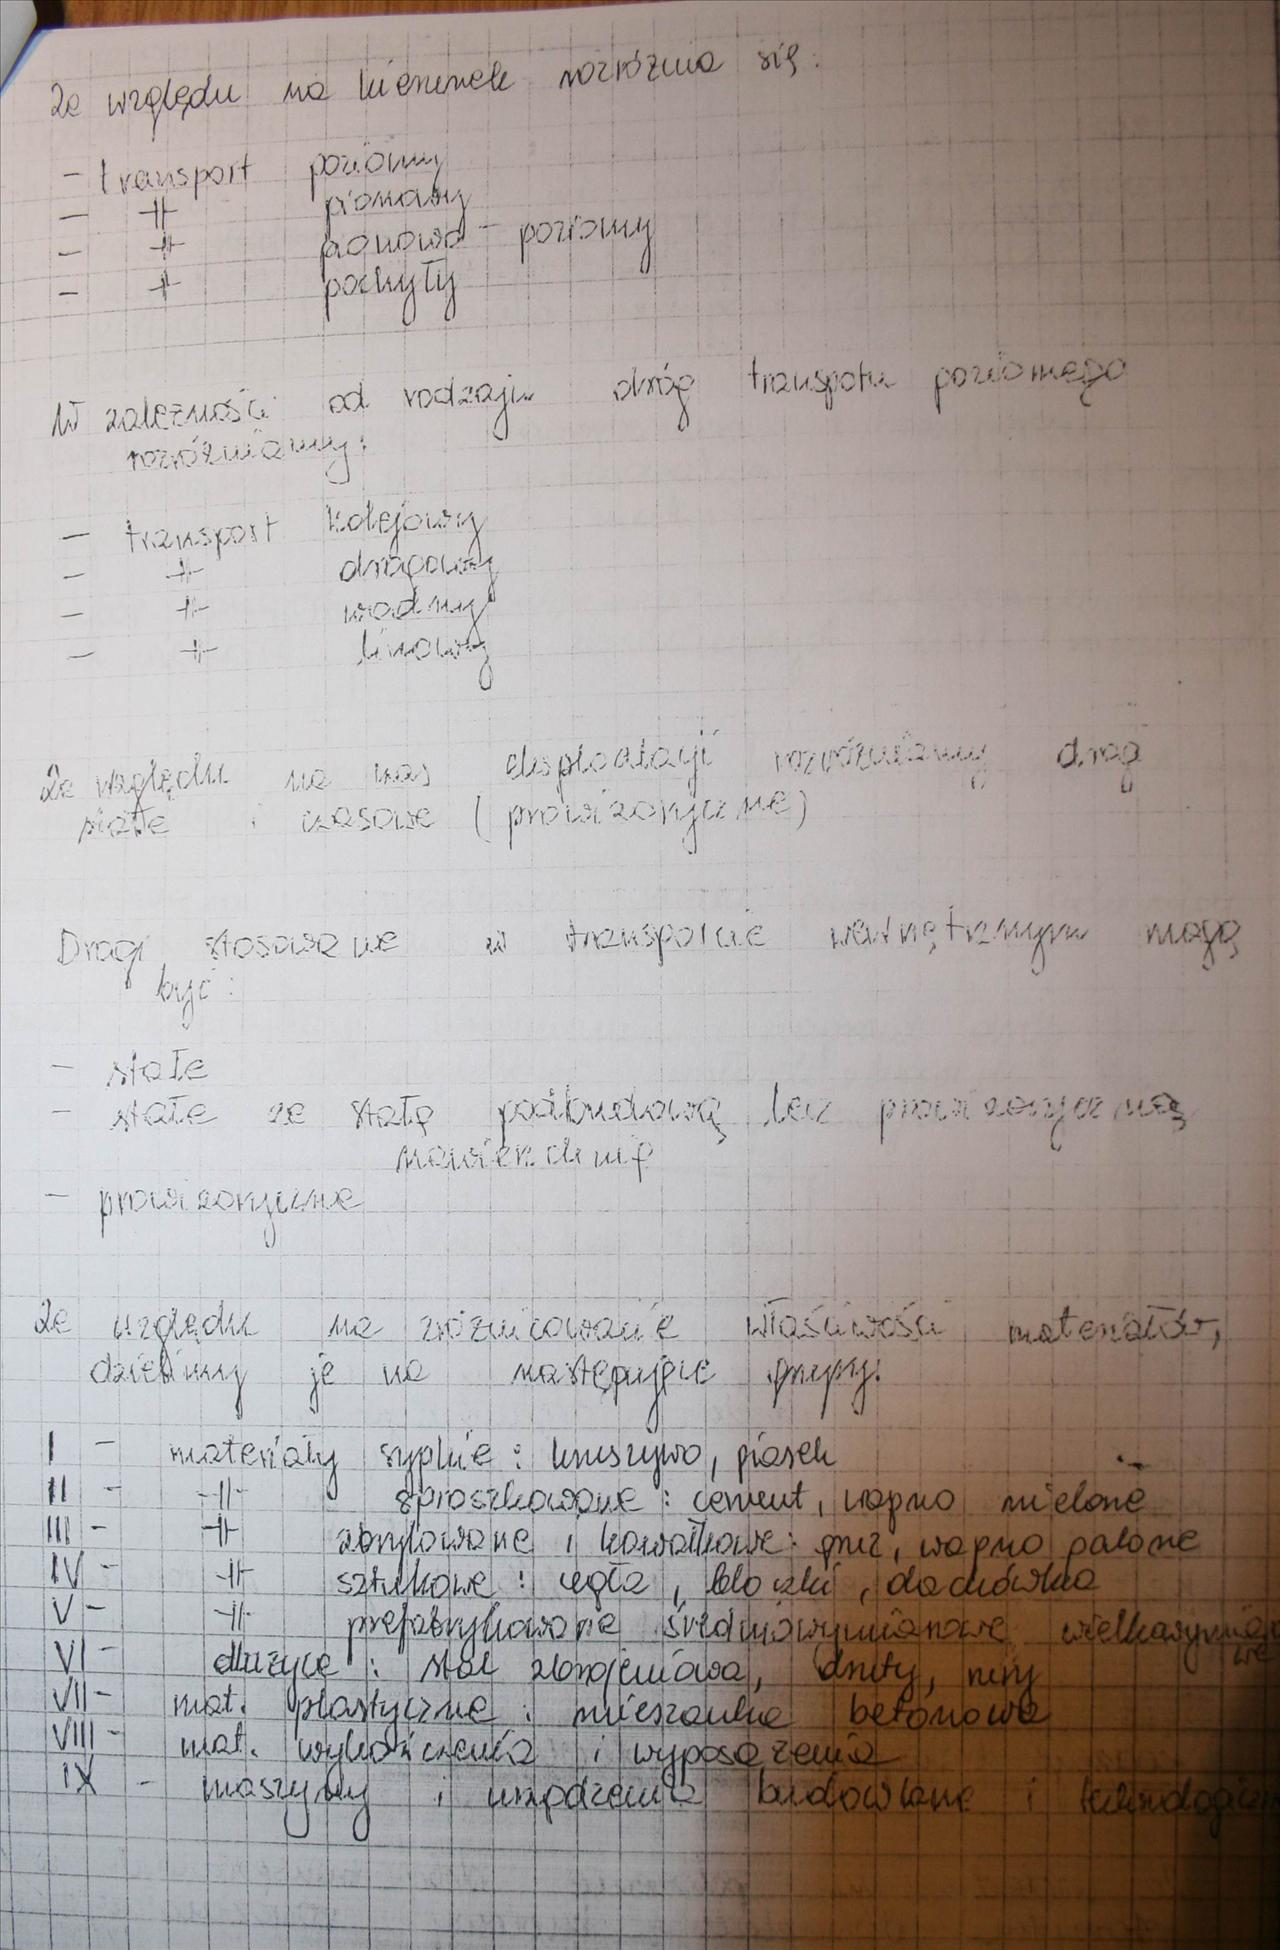 Ze względu na kierunek rozróżnia się:
- transport poziomy
- -||- pionowy
- -||- pionowo - poziomy
- -||- pochyły
W zależności od rodzaju dróg transpotu poziomego
rozróżniamy:
- transport kolejowy
- -||- drogowy
- -||- wodny
- -||- linowy
Ze względu na czas eksploatacji rozróżniamy drogi
stałe i czasowe (prowizoryczne)
Drogi stosowane w transporcie wewnętrznym mogą
być:
- stałe
- stałe ze stałą podbudową lecz prowizoryczną
nawierzchnią
- prowizoryczne
Ze względu na zróżnicowanie właściwości materiałów,
dzielimy je na następujące grupy:
I - materiały sypkie: kruszywo, piasek
II - -||- sproszkowane: cement, wapno mielone
III - -||- zbrylowane i kawałkowe: gruz, wapno palone
IV - -||- sztukowe: cegła, bloczki, dachówka
V - -||- prefabrykowane średniowymiarowe wielkowymiaro
we
VI - dłużyce: stal zbrojeniowa, druty, rury
VII - mat. plastyczne: mieszanka betonowa
VIII - mat. wykończenia i wyposażenia
IX - maszyny i urządzenia budowlane i technologiczn